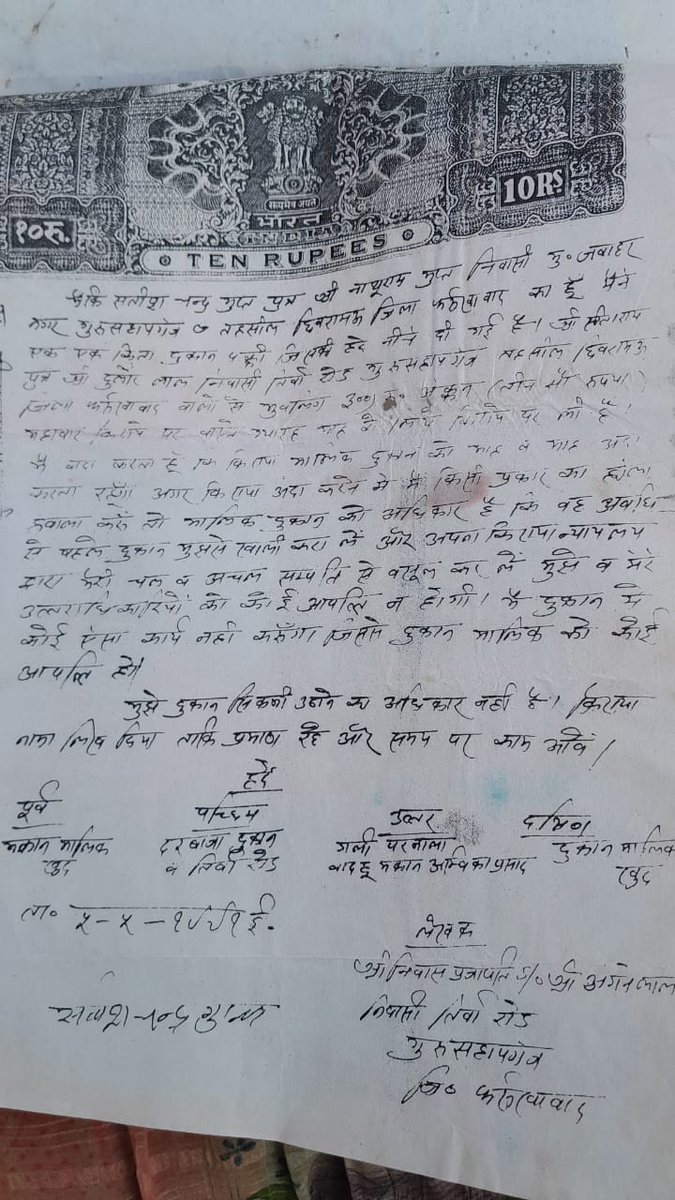 १०रु.
सत्यमेव जयते
भारत
INDIA
10RS
TEN RUPEES
मैकि सतीश चन्द्र गुप्त पुत्र श्री नाथूराम गुप्त निवासी मु० जवाहर
नगर गुरुसहायगंज तहसील छिबरामऊ जिला फर्रुखाबाद का हूँ मैंने
एक दुकान पक्की जिसकी हदें नीचे दी गई है। श्री सीताराम
पुत्र श्री दुलारे लाल निवासी तिर्वा रोड गुरुसहायगंज तहसील छिबरामऊ
जिला फर्रुखाबाद वालों से मुबलिग ३००) रु० अकन (तीन सौ रुपया)
माहवार किराये पर वास्ते ग्यारह माह के लिये किराये पर ली है।
मै वादा करता हूँ कि किराया मालिक दुकान को माह व माह अदा
करता रहूँगा अगर किराया अदा करने मे मैं किसी प्रकार का हीला
हवाला करूँ तो मालिक दुकान को अधिकार है कि वह अवधि
से पहले दुकान मुझसे खाली करा लें और अपना किराया न्यायालय
द्वारा मेरी चल व अचल सम्पत्ति से वसूल कर लें मुझे व मेरे
उत्तराधिकारियों को कोई आपत्ति न होगी। मै दुकान मे
कोई ऐसा कार्य नहीं करूँगा जिससे दुकान मालिक को कोई
आपत्ति हो।
मुझे दुकान सिकमी उठाने का अधिकार नहीं है। किराया
नामा लिख दिया ताकि प्रमाण रहे और समय पर काम आवे।
हदें
पूर्व पच्छिम उत्तर दक्षिण
मकान मालिक खुद
दरवाजा दुकान व तिर्वा रोड
गली परनाला बादहू मकान अम्बिका प्रसाद
दुकान मालिक खुद
ता० ५-५-१९९१ ई.
लेखक
श्री निवास प्रजापति S/० श्री अंगने लाल
सतीश चन्द्र गुप्त
निवासी तिर्वा रोड
गुरुसहायगंज
जि० फर्रुखाबाद